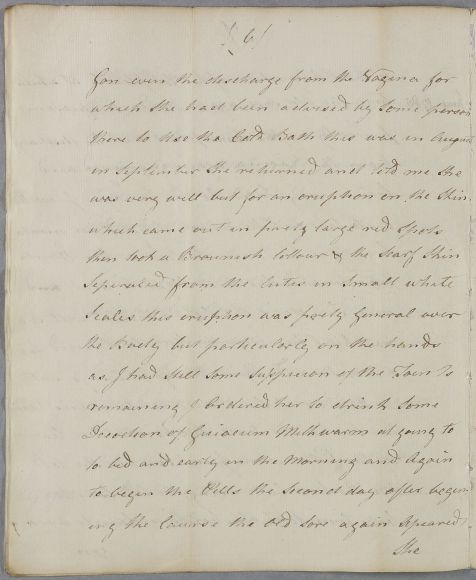 (6)
Gon even the discharge from the Vagina for
which She had been advised by Some person
there to Use the Cold Bath this was in August
in September She returned and told me She
was very well but for an eruption on the Skin.
which came out in prety large red Spots
then took a Brownish Collour & the Scarf Skin
Seperated from the Cutis in Small white
Scales this eruption was prety General over
the Body but particularly on the hands
as I had Still Some Suppicion of the Taint
remaining I Ordered her to drink Some
Decoction of Guiacum Milkwarm at going to
to bed and early in the Morning and Again
to begin the Pills the Second day after begin
ing the Course the Old Sore again Apeared
She